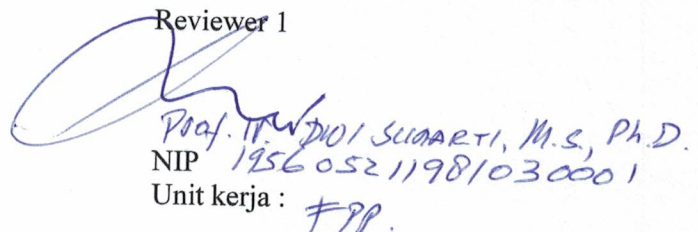 Reviewer 1
Prof. Ir. DWI SUNARTI, M.S., Ph.D.
NIP 195605211981030001
Unit kerja : FPP.